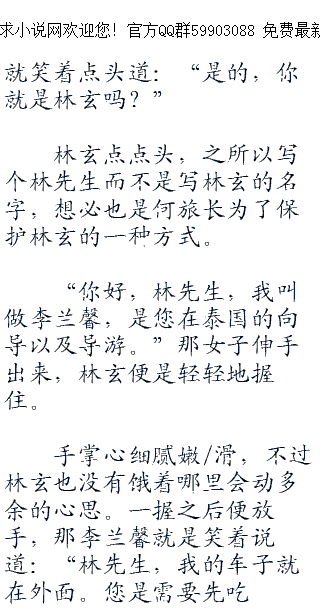 求小说网欢迎您！官方QQ群59903088 免费最新
就笑着点头道：“是的，你
就是林玄吗？”
林玄点点头，之所以写
个林先生而不是写林玄的名
字，想必也是何旅长为了保
护林玄的一种方式。
“你好，林先生，我叫
做李兰馨，是您在泰国的向
导以及导游。”那女子伸手
出来，林玄便是轻轻地握
住。
手掌心细腻嫩/滑，不过
林玄也没有饿着哪里会动多
余的心思。一握之后便放
手，那李兰馨就是笑着说
道：“林先生，我的车子就
在外面。您是需要先吃